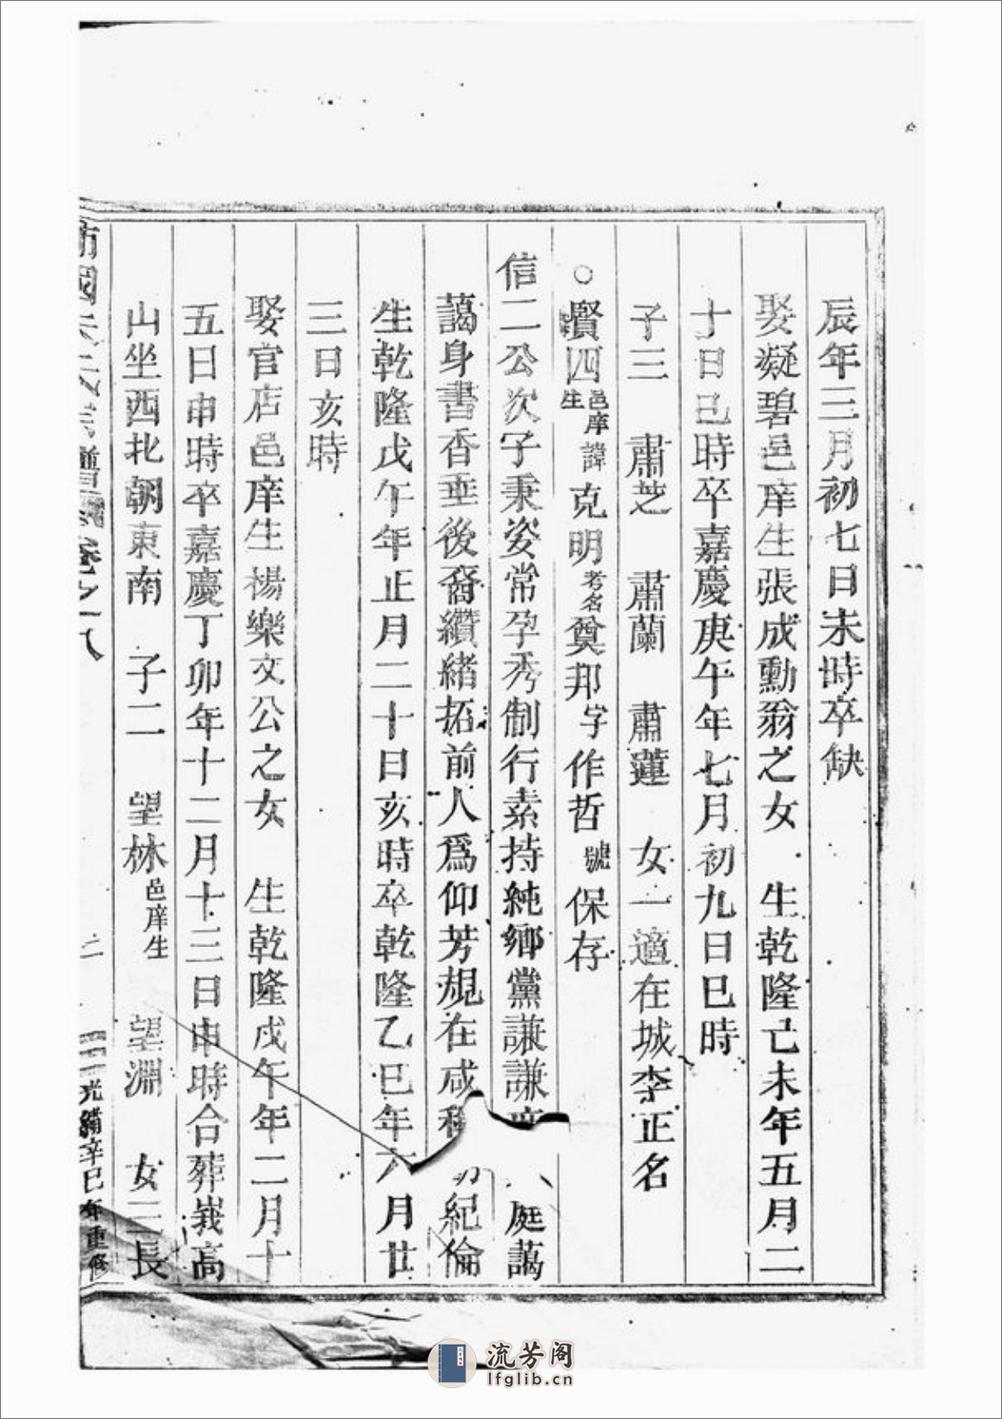 辰年三月初七日未時卒缺
娶凝碧邑庠生張成勳翁之女 生乾隆己未年五月二
十日巳時卒嘉慶庚午年七月初九日巳時
子三 肅芝 肅蘭 肅蓮 女一適在城李正名
○賢四邑庠生諱克明考名奠邦字作哲號保存
信二公次子秉姿常孕秀制行素持純鄉黨謙謙 庭藹
藹身書香垂後裔纘緒拓前人為仰芳規在咸 紀倫
生乾隆戊午年正月二十日亥時卒乾隆乙巳年六月廿
三日亥時
娶官店邑庠生楊樂文公之女 生乾隆戊午年二月十
五日申時卒嘉慶丁卯年十二月十三日申時合葬峩高
山坐西北朝東南 子二 望林邑庠生 望淵 女三長
氏宗譜 卷之八 二 光緒辛巳年重修
流芳阁
lfglib.cn